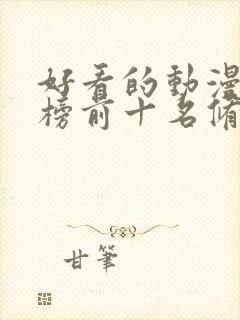 好看的動漫
榜前十名備
甘筆